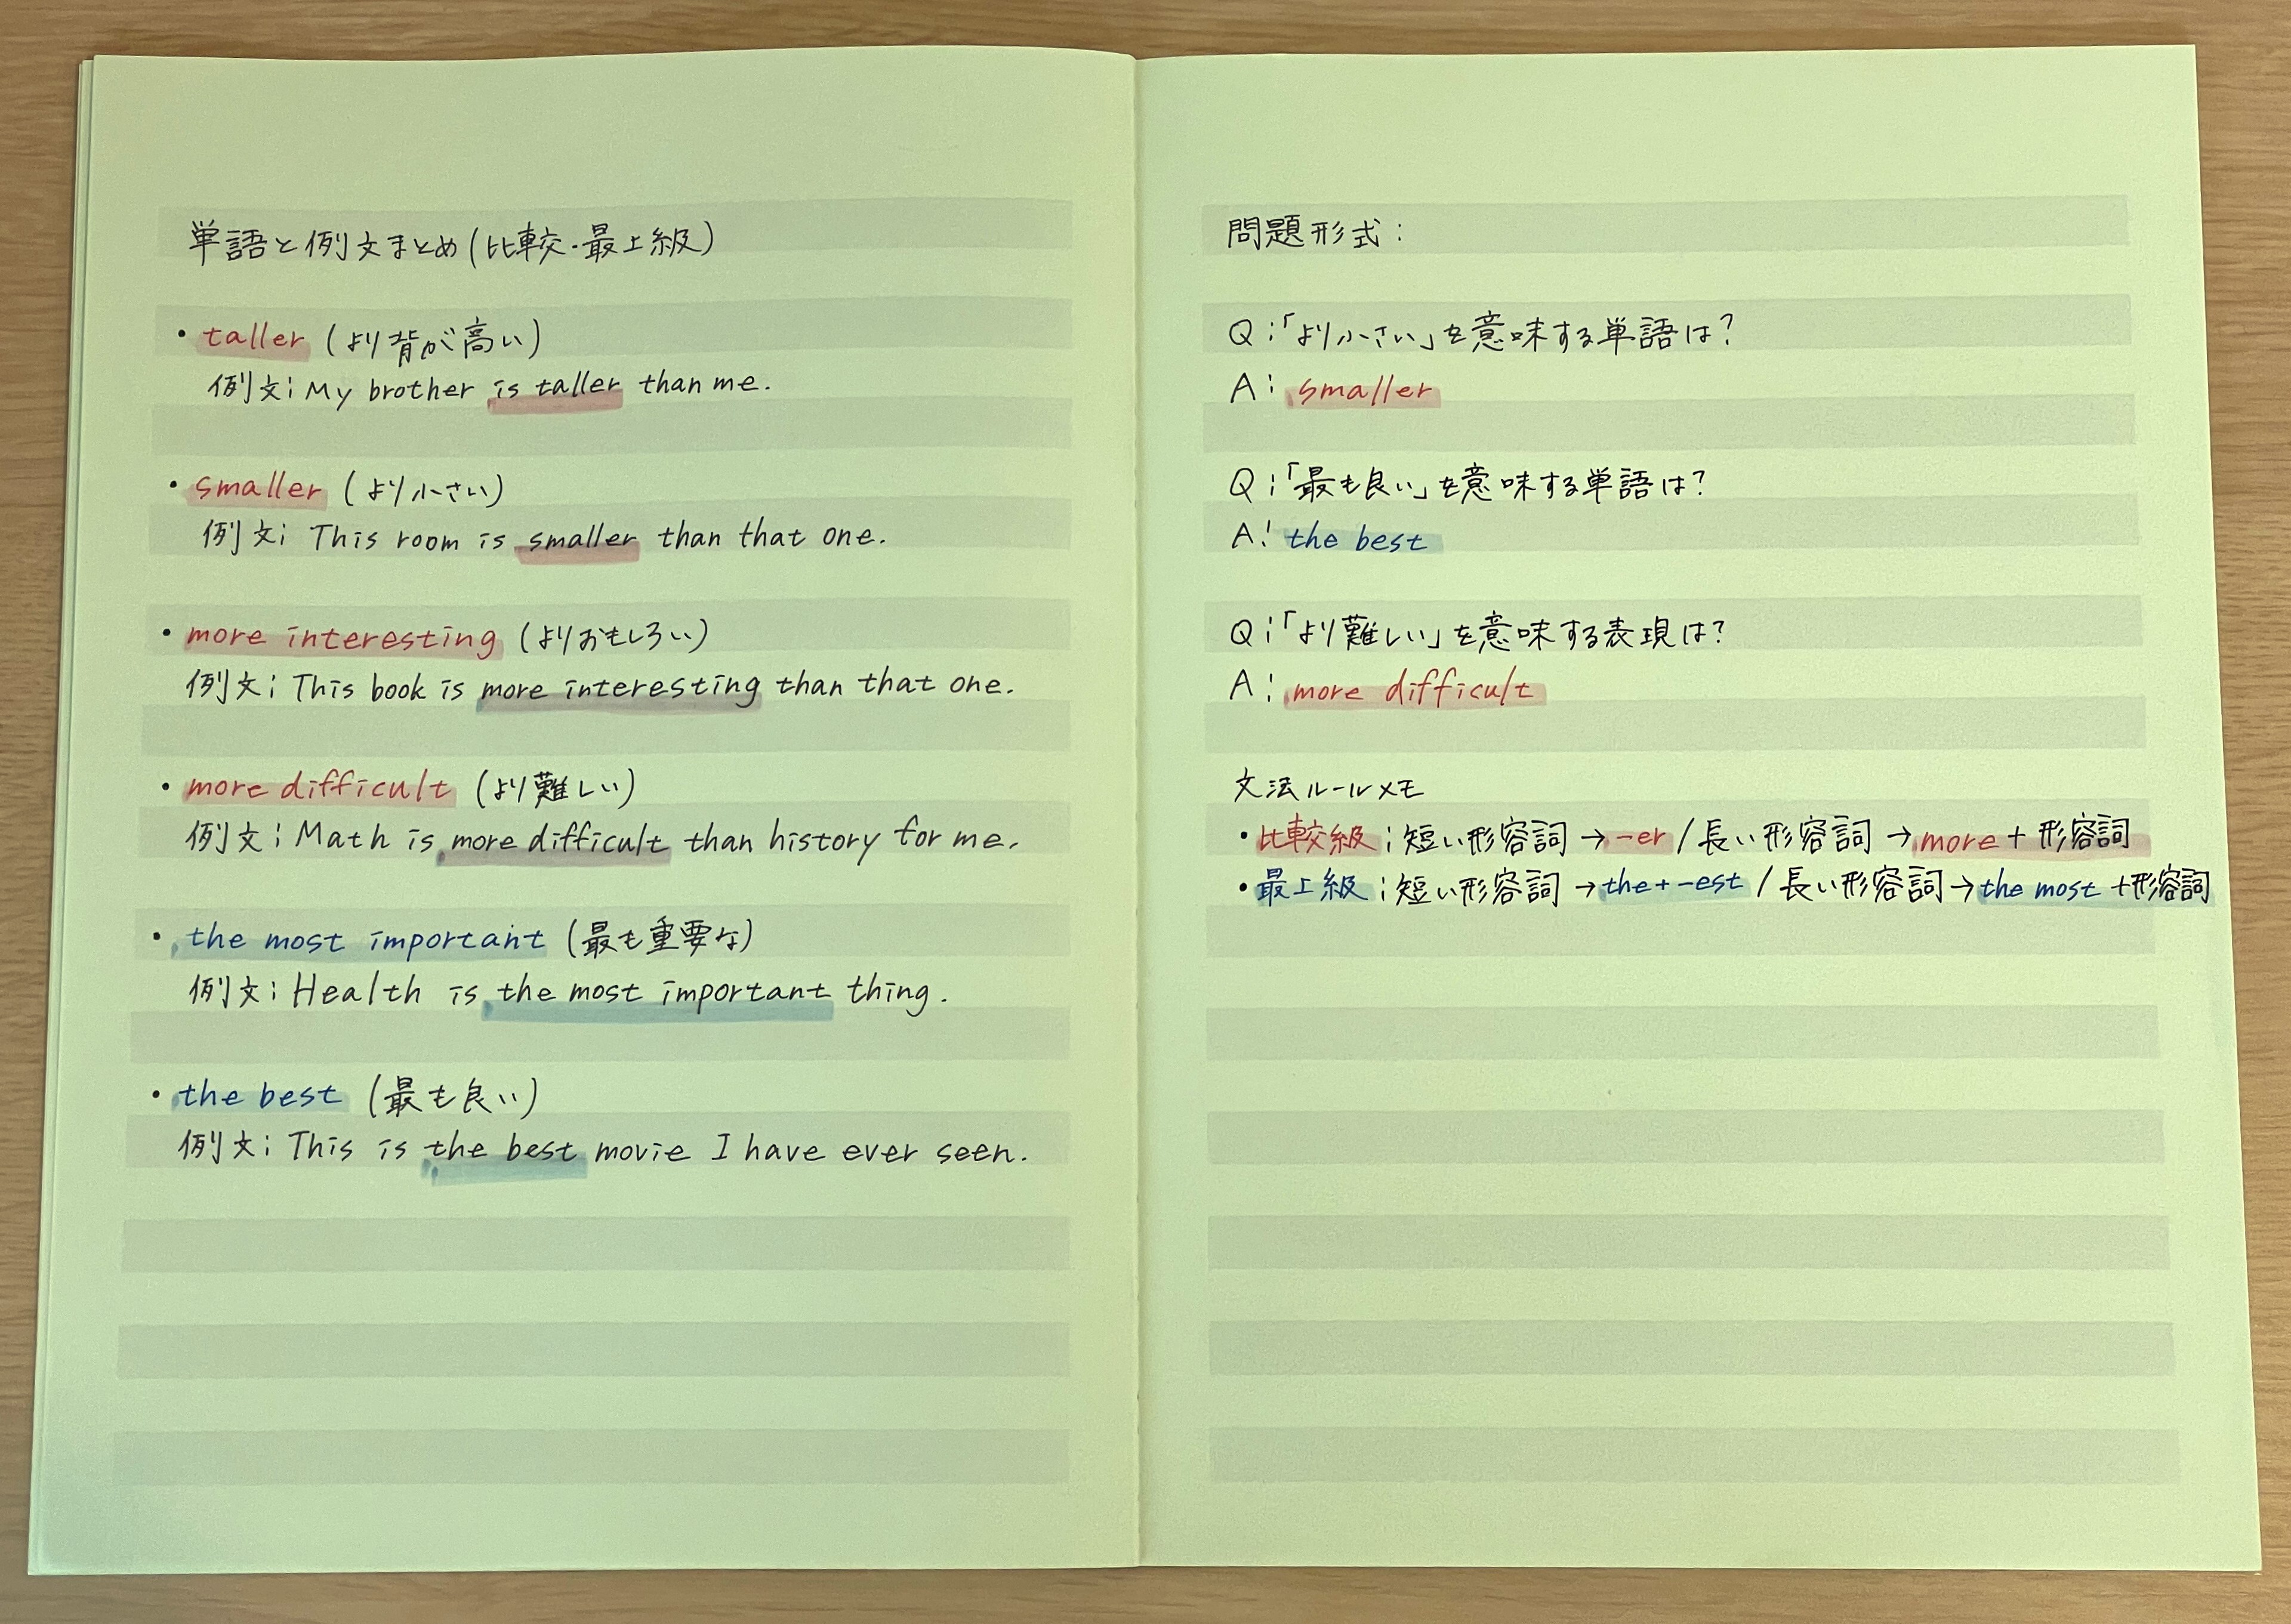 単語と例文まとめ(比較・最上級)
・taller (より背が高い)
例文: My brother is taller than me.
・smaller (より小さい)
例文: This room is smaller than that one.
・more interesting (よりおもしろい)
例文: This book is more interesting than that one.
・more difficult (より難しい)
例文: Math is more difficult than history for me.
・the most important (最も重要な)
例文: Health is the most important thing.
・the best (最も良い)
例文: This is the best movie I have ever seen.
問題形式:
Q:「より小さい」を意味する単語は?
A: smaller
Q:「最も良い」を意味する単語は?
A: the best
Q:「より難しい」を意味する表現は?
A: more difficult
文法ルールメモ
・比較級:短い形容詞→-er/長い形容詞→more+形容詞
・最上級:短い形容詞→the+-est/長い形容詞→the most+形容詞